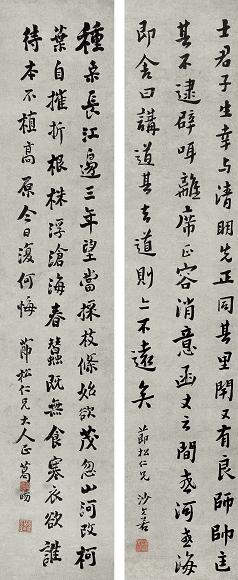 士君子生幸与清明先正其里閈又有良師帥匡
其不逮辟咡離席正容消意函丈之間或河或海
即舍曰講道其去道則不遠矣 節松仁兄 沙文若
種桑長江邊三年望當採枝條始欲茂忽山河改柯
葉自摧折根株浮滄海春蠶既無食寒衣欲誰
待本不植高原今日復何悔 節松仁兄大人正 葛